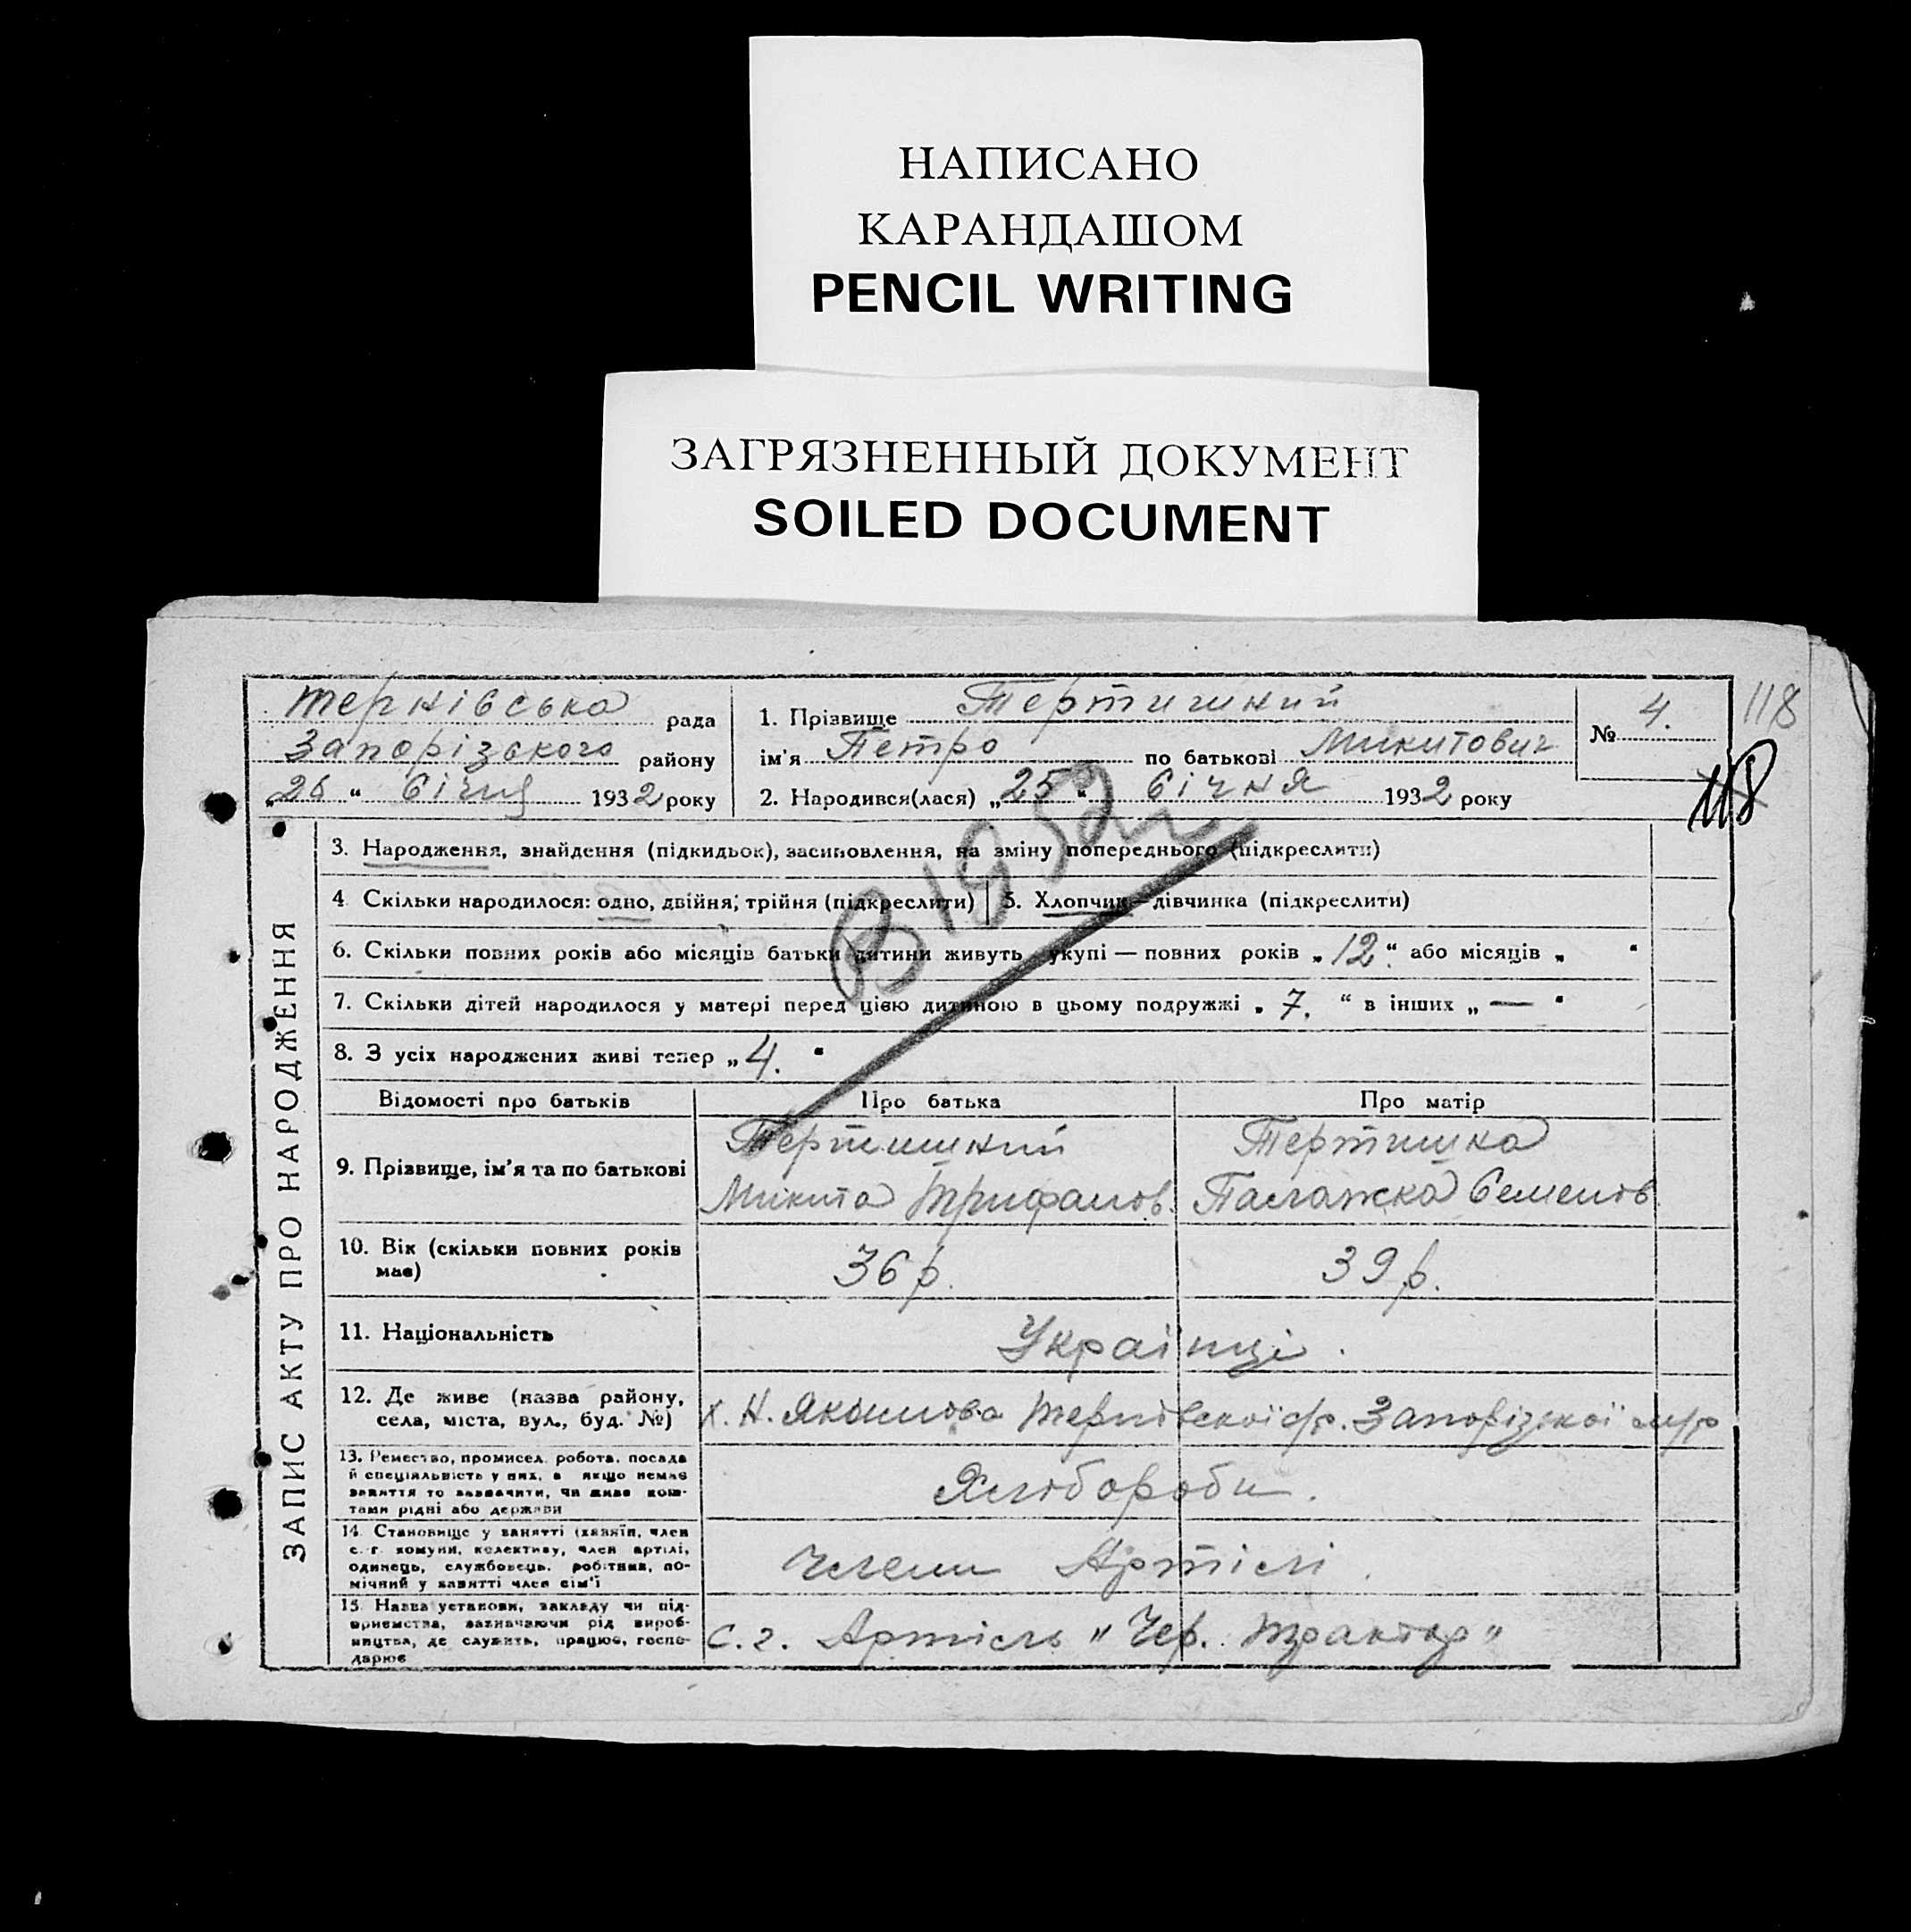 НАПИСАНО
КАРАНДАШОМ
PENCIL WRITING
ЗАГРЯЗНЕННЫЙ ДОКУМЕНТ
SOILED DOCUMENT
118
118
ЗАПИС АКТУ ПРО НАРОДЖЕННЯ
Тернівська рада
Запорізького району
„26“ Січня 1932 року
1. Прізвище Тертишний
ім'я Петро по батькові Микитович
2. Народився(лася) „25“ Січня 1932 року
№ 4.
3. Народження, знайдення (підкидьок), засиновлення, на зміну попереднього (підкреслити)
4. Скільки народилося: одно, двійня, трійня (підкреслити) 5. Хлопчик — дівчинка (підкреслити)
6. Скільки повних років або місяців батьки дитини живуть укупі — повних років „12“ або місяців „ “
7. Скільки дітей народилося у матері перед цією дитиною в цьому подружжі „7.“ в інших „—“
8. З усіх народжених живі тепер „4.“
Відомості про батьків Про батька Про матір
9. Прізвище, ім'я та по батькові
Тертишний
Микита Трифанов.
Тертишна
Палажка Семенов
10. Вік (скільки повних років має) 36 р. 39 р.
11. Національність Українці.
12. Де живе (назва району,
села, міста, вул., буд. №) х. Н. Якимова Тернівської с/р. Запорізької м/р
13. Ремество, промисел, робота, посада
й спеціяльність у них, а якщо немає
заняття то зазначити, чи живе кош-
тами рідні або держави
Хлібороби.
14. Становище у занятті (хазяїн, член
с.-г. комуни, колективу, член артілі,
одинець, службовець, робітник, по-
мічний у занятті член сім'ї
Члени Артілі.
15. Назва установи, закладу чи під-
приємства, зазначаючи рід вироб-
ництва, де служить, працює, госпо-
дарює
С. г. Артіль „Чер. трактор“